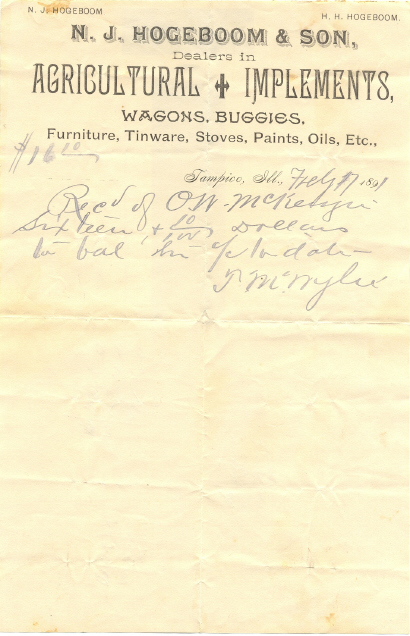 N. J. HOGEBOOM
H. H. HOGEBOOM.
N. J. HOGEBOOM & SON,
Dealers in
AGRICULTURAL IMPLEMENTS,
WAGONS, BUGGIES,
Furniture, Tinware, Stoves, Paints, Oils, Etc.,
$16 10
Tampico, Ill., Feby 17 1891
Recd of O.W. McKenzie
Sixteen + 10/100 Dollars
to bal in to date